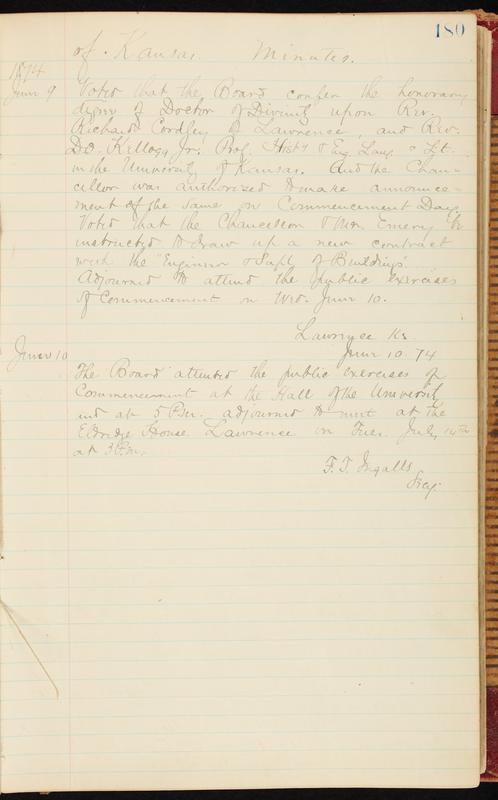 180
of Kansas. Minutes.
1874
June 9 Voted that the Board confer the honorary
degree of Doctor of Divinity upon Rev.
Richard Cordley of Lawrence, and Rev.
Kellogg, Jr. Prof. Hist'y & Eng Lang & Lit.
in the University of Kansas. And the Chan-
cellor was authorized to make announce-
ment of the same on Commencement Day.
Voted that the Chancellor & Mr. Emery be
instructed to draw up a new contract
with the "Engineer & Supt of Buildings".
Adjourned to attend the public exercises
of Commencement on Wed. June 10.
Lawrence Ks.
June 10 June 10. 74
The Board attended the public exercises of
Commencement at the Hall of the University
and at 5 P.m. adjourned to meet at the
Eldridge House Lawrence on Tues. July 14th
at 3 P.m.
F. T. Ingalls
Secy.